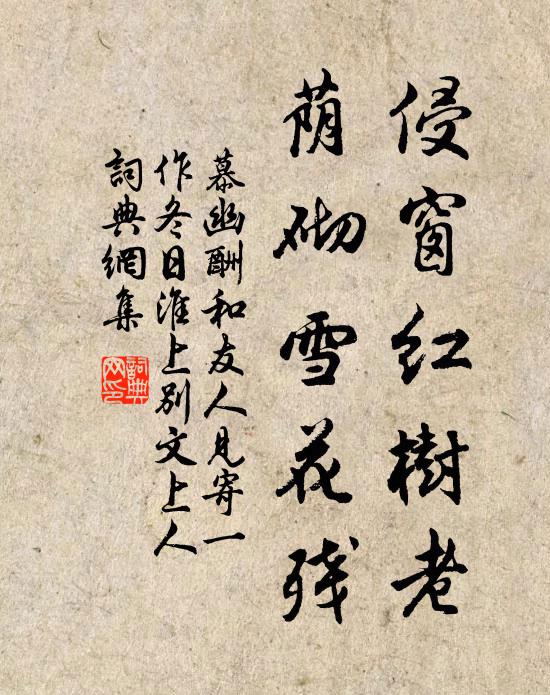 侵窗红樹老
荫砌雪花残
慕幽酬和友人見寄一
作冬日淮上別文上人
詞典網集
詞典
网印